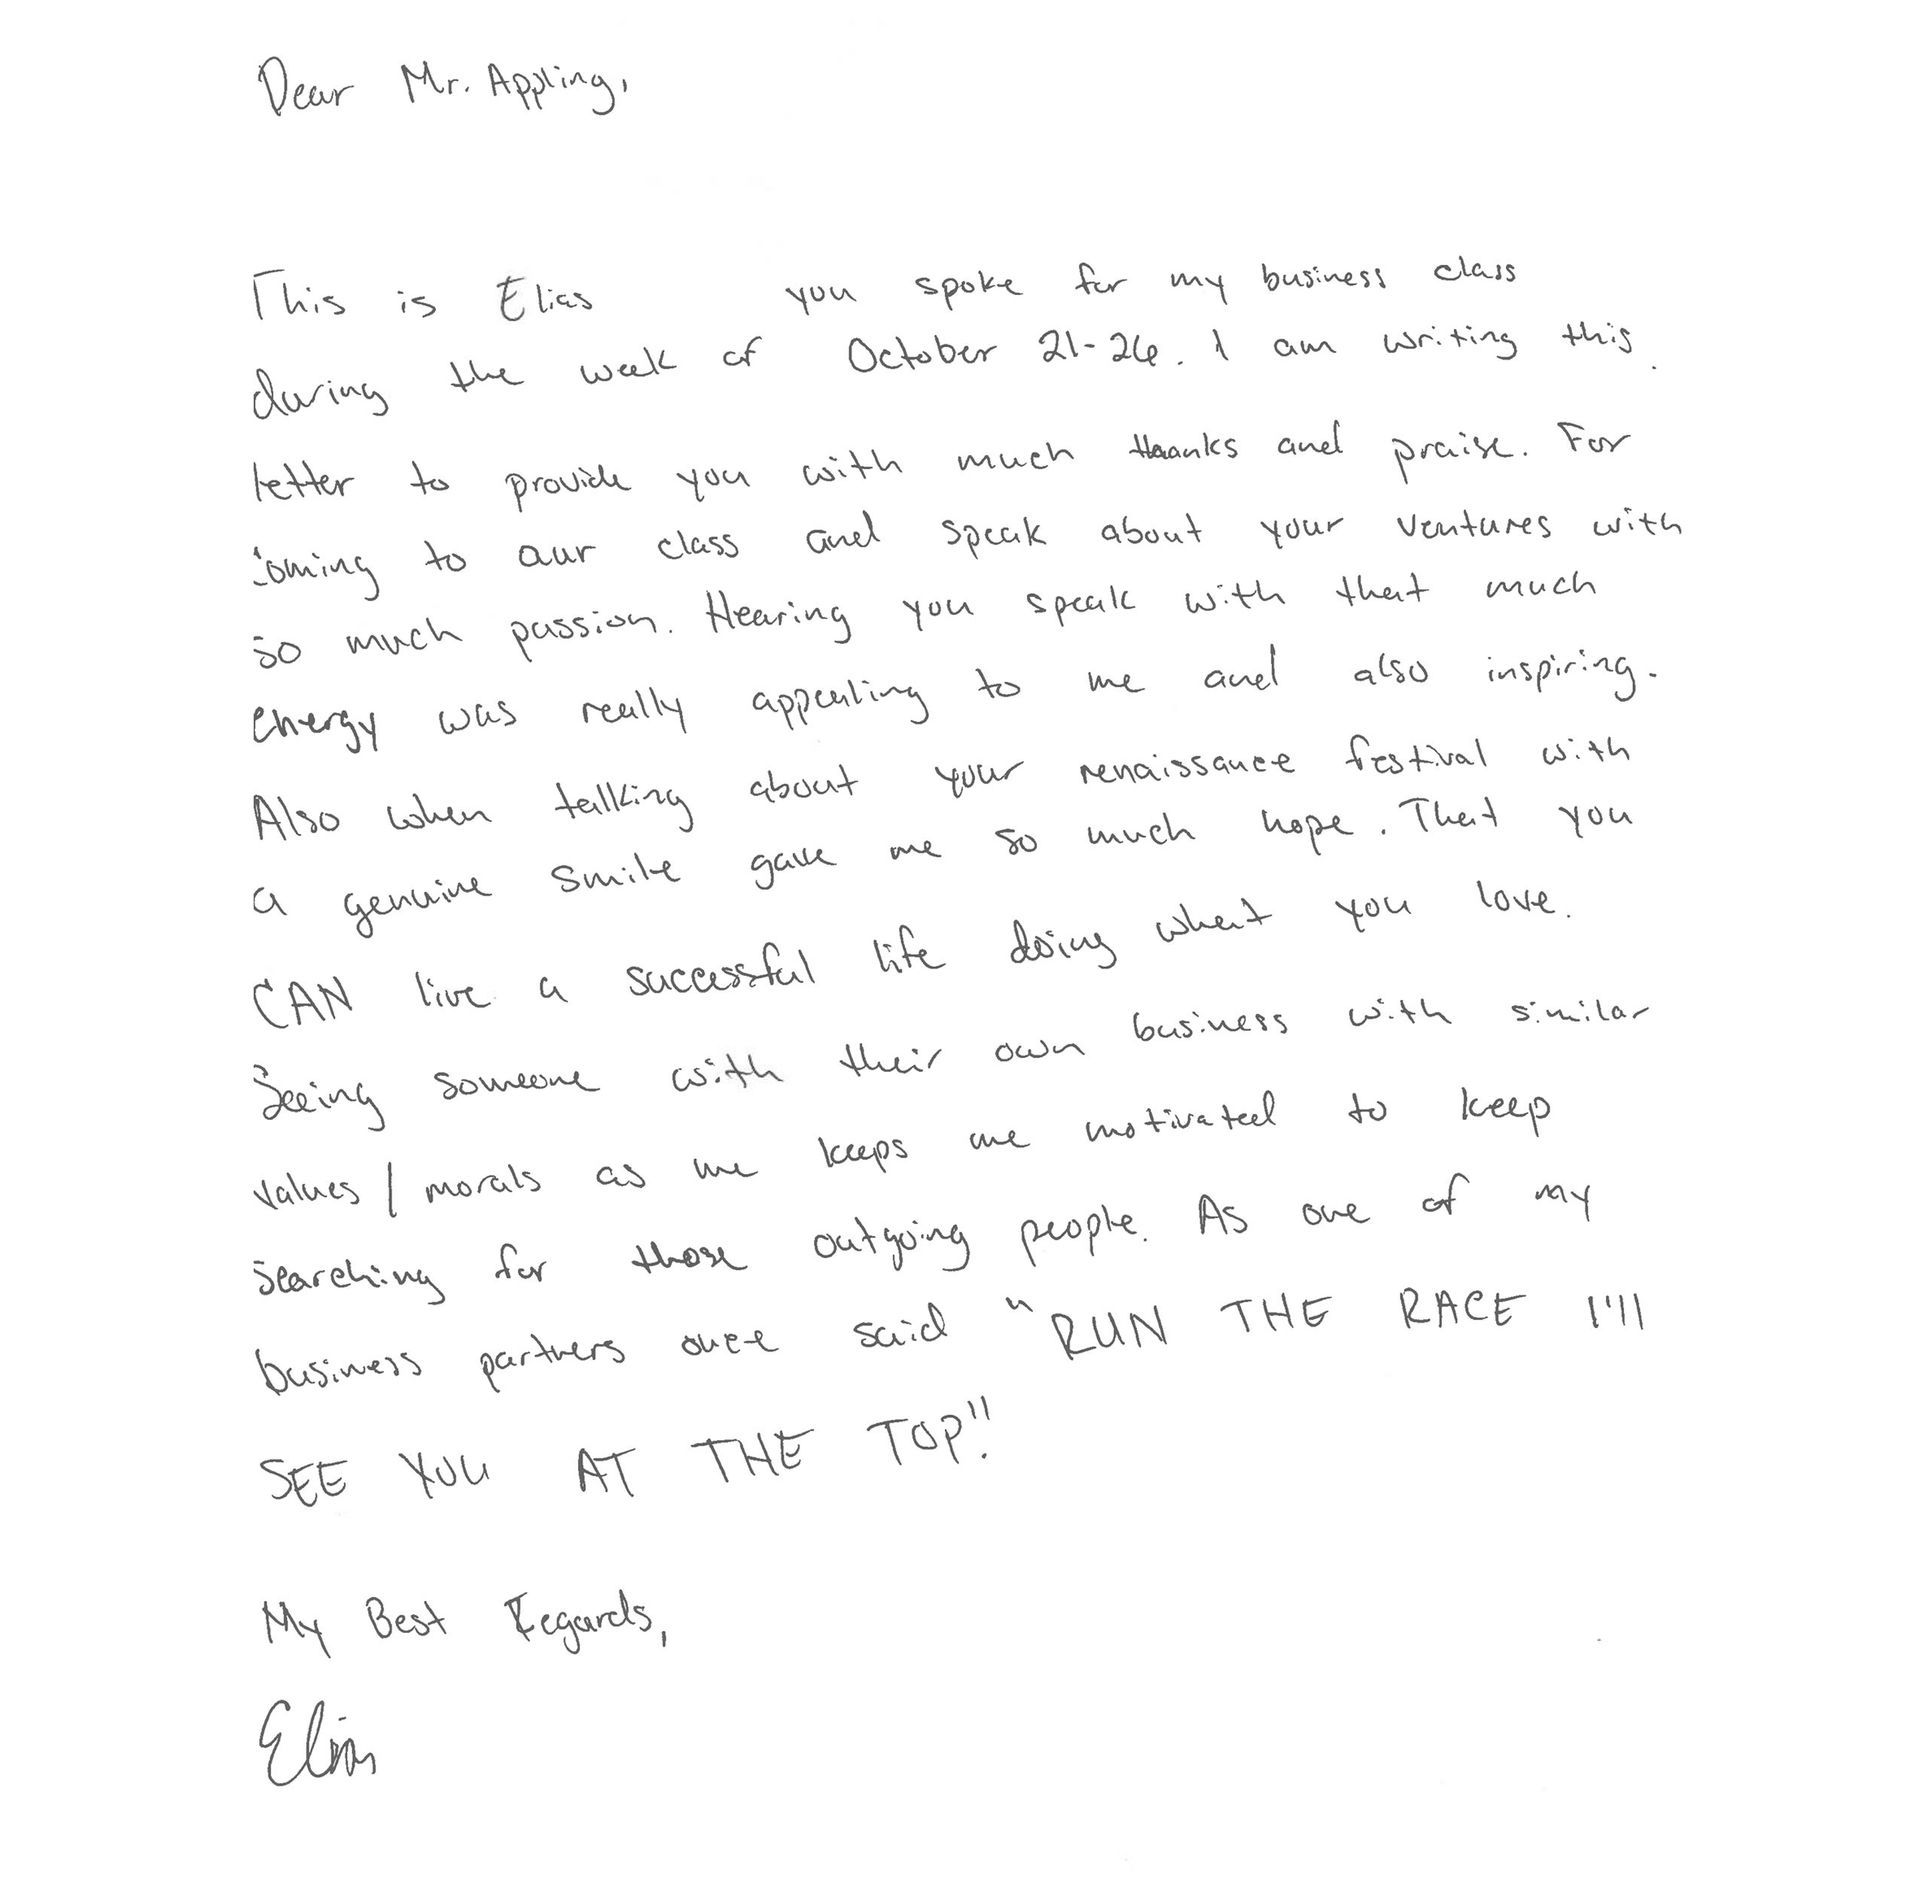 Dear Mr. Appling,
This is Elias you spoke for my business class
during the week of October 21-26. I am writing this
letter to provide you with much thanks and praise. For
coming to our class and speak about your ventures with
so much passion. Hearing you speak with that much
energy was really appealing to me and also inspiring.
Also when talking about your renaissance festival with
a genuine smile gave me so much hope. That you
CAN live a successful life doing what you love.
Seeing someone with their own business with similar
values/morals as me keeps me motivated to keep
searching for those outgoing people. As one of my
business partners once said "RUN THE RACE I'll
SEE YOU AT THE TOP."
My Best Regards,
Elias